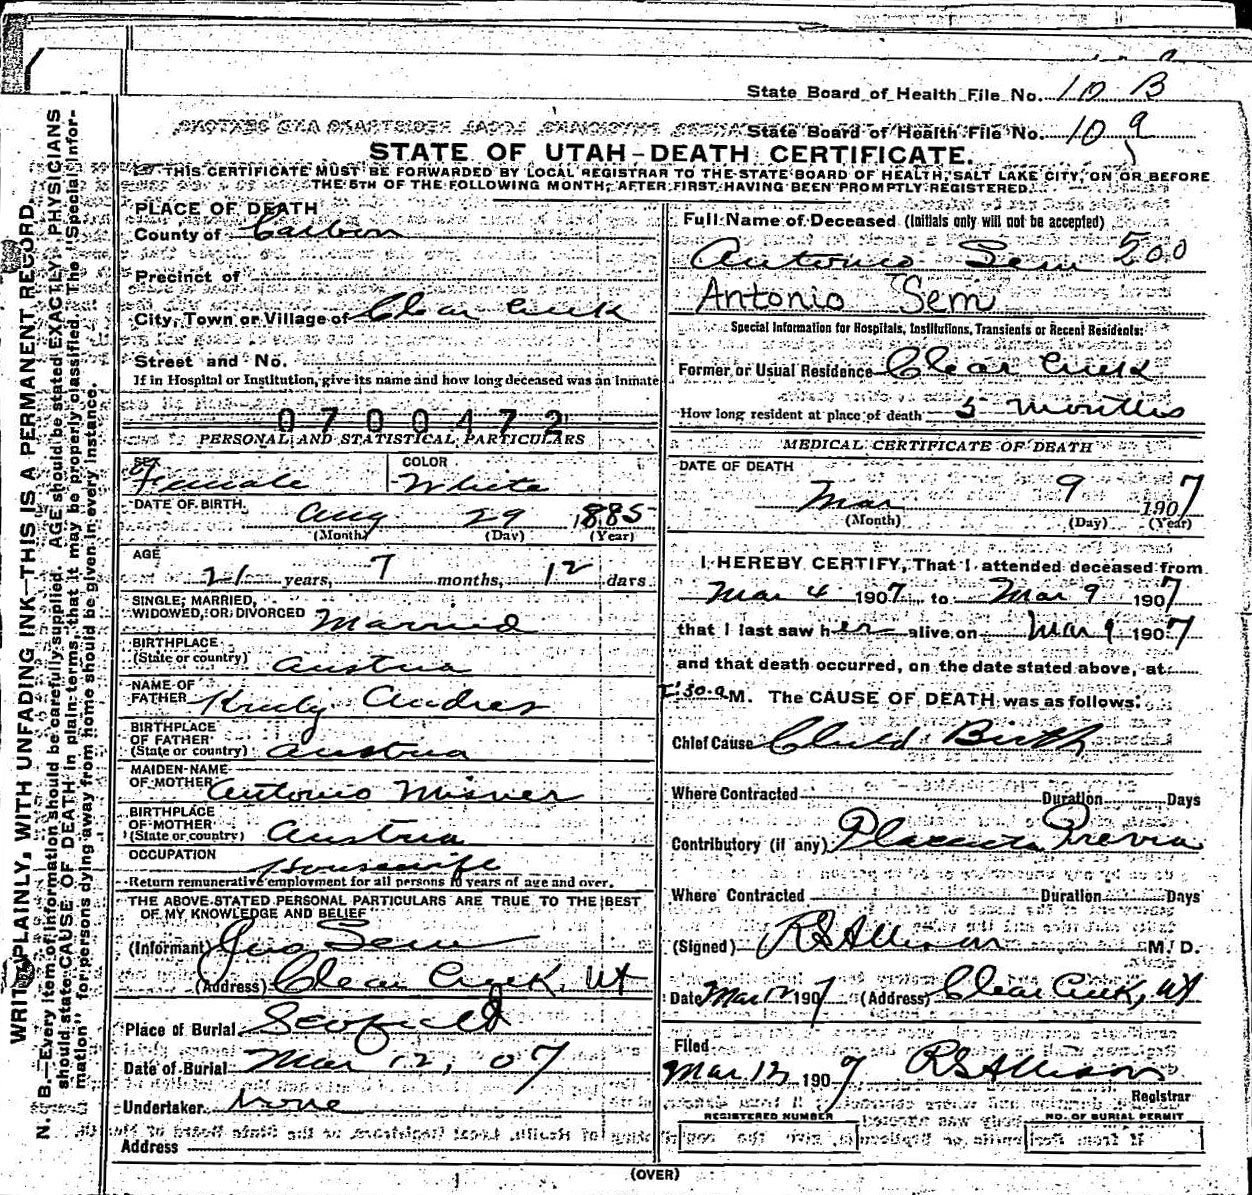 State Board of Health File No. 10 B
State Board of Health File No. 10 9
STATE OF UTAH-DEATH CERTIFICATE.
THIS CERTIFICATE MUST BE FORWARDED BY LOCAL REGISTRAR TO THE STATE BOARD OF HEALTH, SALT LAKE CITY, ON OR BEFORE
THE 5TH OF THE FOLLOWING MONTH, AFTER FIRST HAVING BEEN PROMPTLY REGISTERED.
WRITE PLAINLY, WITH UNFADING INK—THIS IS A PERMANENT RECORD.
N. B.—Every item of information should be carefully supplied. AGE should be stated EXACTLY. PHYSICIANS
should state CAUSE OF DEATH in plain terms, that it may be properly classified. The "Special Infor-
mation" for persons dying away from home should be given in every instance.
PLACE OF DEATH
County of Carbon
Precinct of
City, Town or Village of Clear Creek
Street and No.
If in Hospital or Institution, give its name and how long deceased was an inmate
0700472
PERSONAL AND STATISTICAL PARTICULARS
SEX Female COLOR White
DATE OF BIRTH. Aug 29 1885
(Month) (Day) (Year)
AGE
21 years, 7 months, 12 days
SINGLE, MARRIED,
WIDOWED, OR DIVORCED Married
BIRTHPLACE
(State or country) Austria
NAME OF
FATHER Andres
BIRTHPLACE
OF FATHER
(State or country) Austria
MAIDEN NAME
OF MOTHER Antonio Misner
BIRTHPLACE
OF MOTHER
(State or country) Austria
OCCUPATION Housewife
Return remunerative employment for all persons 10 years of age and over.
THE ABOVE STATED PERSONAL PARTICULARS ARE TRUE TO THE BEST
OF MY KNOWLEDGE AND BELIEF
(Informant) Jno Sem
(Address) Clear Creek, Ut
Place of Burial Scofield
Date of Burial Mar 12, 07
Undertaker None
Address
Full Name of Deceased (Initials only will not be accepted)
Antonio Sem 500
Antonio Sem
Special Information for Hospitals, Institutions, Transients or Recent Residents:
Former or Usual Residence Clear Creek
How long resident at place of death 5 Months
MEDICAL CERTIFICATE OF DEATH
DATE OF DEATH
Mar 9 1907
(Month) (Day) (Year)
I HEREBY CERTIFY, That I attended deceased from
Mar 4 1907 to Mar 9 1907
that I last saw her alive on Mar 9 1907
and that death occurred, on the date stated above, at
30 a M. The CAUSE OF DEATH was as follows:
Chief Cause Child Birth
Where Contracted Duration Days
Contributory (if any) Placenta Previa
Where Contracted Duration Days
(Signed) RS Allison M. D.
Date Mar 12 1907 (Address) Clear Creek, Ut
Filed
Mar 12, 1907 RS Allison
Registrar
REGISTERED NUMBER NO. OF BURIAL PERMIT
(OVER)